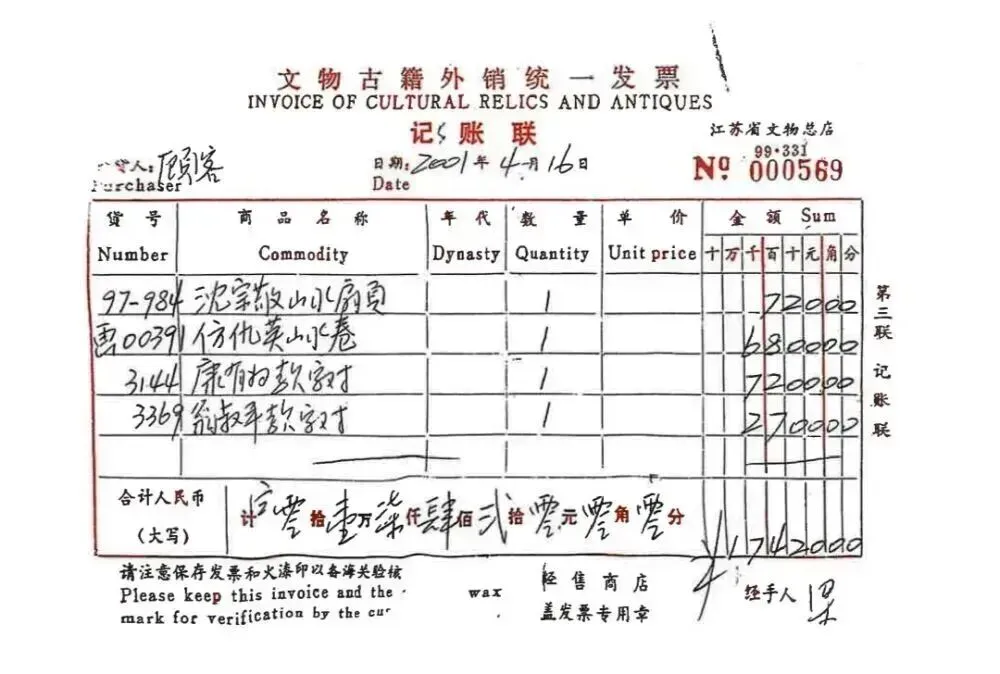 文物古籍外销统一发票
INVOICE OF CULTURAL RELICS AND ANTIQUES
记账联
江苏省文物总店
货人: 顾客
Purchaser
日期: 2001年4月16日
Date
99·331
Nº 000569
货号 商品名称 年代 数量 单价 金额 Sum
Number Commodity Dynasty Quantity Unit price 十万千百十元角分
97-984 沈宗敬山水扇页 1 72000
画00391 仿仇英山水卷 1 680000
3144 康有为款字对 1 720000
3369 翁叔平款字对 1 270000
合计人民币
(大写)
计零拾壹万柒仟肆佰贰拾零元零角零分
¥1742000
请注意保存发票和火漆印以备海关验核
Please keep this invoice and the wax
mark for verification by the cus
经售商店
盖发票专用章
经手人
第三联 记账联